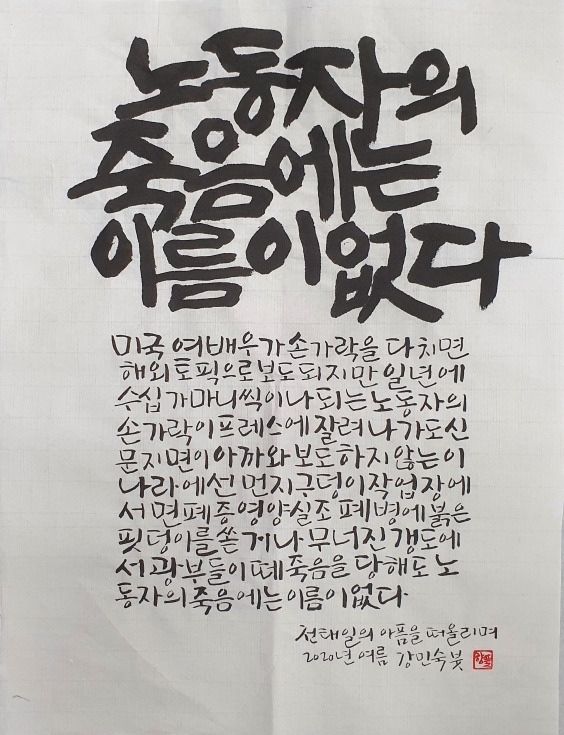 노동자의
죽음에는
이름이없다
미국여배우가손가락을다치면
해외토픽으로보도되지만일년에
수십가마니씩이나되는노동자의
손가락이프레스에잘려나가도신
문지면이아까와보도하지않는이
나라에선먼지구덩이작업장에
서면폐증영양실조폐병에붉은
핏덩이를쏟거나무너진갱도에
서광부들이떼죽음을당해도노
동자의죽음에는이름이없다
전태일의 아픔을 떠올리며
2020년 여름 강민숙붓